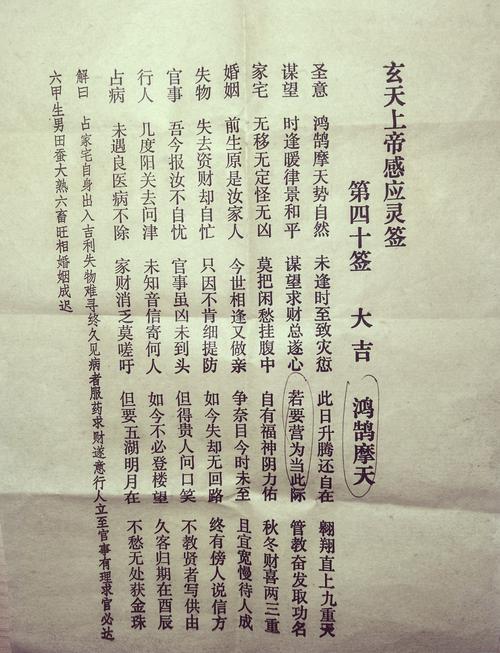 玄天上帝感应灵签
第四十签 大吉 鸿鹄摩天
圣意 鸿鹄摩天势自然 未逢时至致灾愆 此日升腾还自在 翱翔直上九重天
谋望 时逢暖律景和平 谋望求财总遂心 若要营为当此际 管教奋发取功名
家宅 无移无定怪无凶 莫把闲愁挂腹中 自有福神阴力佑 秋冬财喜两三重
婚姻 前生原是汝家人 今世相逢又做亲 争奈目今时未至 且宜宽慢待人成
失物 失去资财却自忙 只因不肯细提防 如今失却无回路 终有傍人说信方
官事 吾今报汝不自忧 官事虽凶未到头 但得贵人问口笑 不教贤者写供由
行人 几度阳关去问津 未知音信寄何人 如今不必登楼望 久客归期在酉辰
占病 未遇良医病不除 家财消乏莫嗟吁 但要五湖明月在 不愁无处获金珠
解曰 占家宅自身出入吉利失物难寻终久见病者服药求财遂意行人立至官事有理求官必达
六甲生男田蚕大熟六畜旺相婚姻成迟